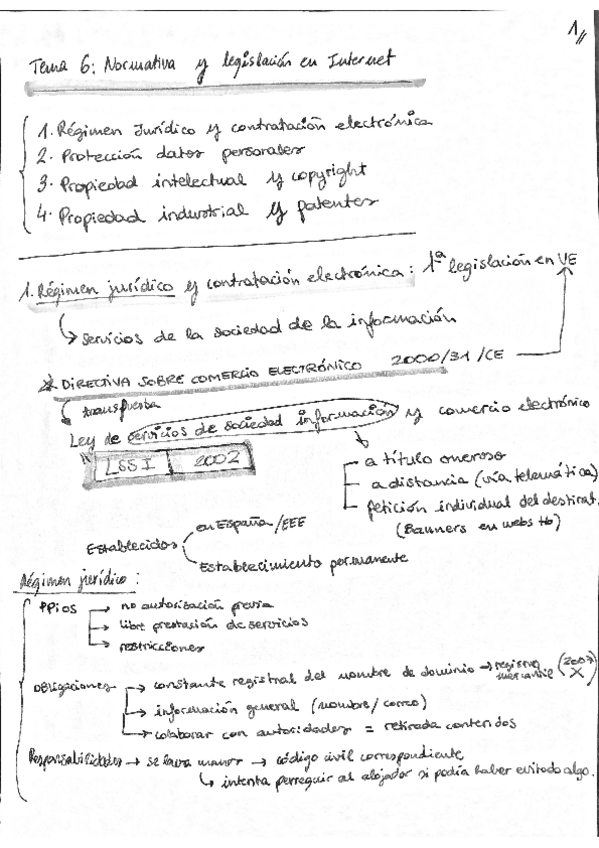 1//
Tema 6: Normativa y legislación en Internet
1. Régimen Jurídico y contratación electrónica
2. Protección datos personales
3. Propiedad intelectual y copyright
4. Propiedad industrial y patentes
1. Régimen jurídico y contratación electrónica: 1ª legislación en UE
servicios de la sociedad de la información
* DIRECTIVA SOBRE COMERCIO ELECTRÓNICO 2000/31/CE
transpuesta
Ley de servicios de sociedad información y comercio electrónico
LSSI 2002
- a título oneroso
- a distancia (vía telemática)
- petición individual del destinat.
(Banners en webs tb)
Establecidos
en España/EEE
Establecimiento permanente
Régimen jurídico:
PPios → no autorización previa
→ libre prestación de servicios
→ restricciones
Obligaciones → constante registral del nombre de dominio → registro mercantil (2007 X)
→ información general (nombre/correo)
→ colaborar con autoridades = retirada contenidos
Responsabilidades → se lava manos → código civil correspondiente
↳ intenta perseguir al alojador si podía haber evitado algo.